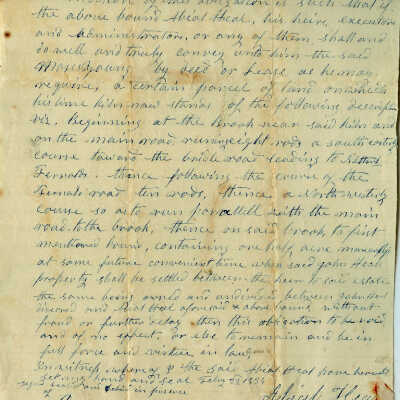 of this obligation is such that if
the above bound Abial Heal, his heirs, executors
and administrators, or any of them shall and
do well and truly convey unto him the said
by deed or lease as he may
require, a certain parcel of land on which
his lime kiln now stands of the following description
viz. Beginning at the brook near said kiln and
on the main road running eight rods a south easterly
course toward the bridle road leading to
thence following the course of the
road ten rods, thence a North westerly
course so as to run parallell with the main
road to the brook, thence on said brook to first
mentioned bound, containing one half acre
at some future convenient time when said John Heal
property shall be settled between the heirs to said estate
the same being owned and undivided between
and Abial Heal aforesaid & above named without
fraud or further delay then this obligation to be void
and of no effect, or else to remain and be in
full force and virtue in law
In witness whereof I the said Abial Heal have hereunto
set my hand and seal
in presence
Abial Heal